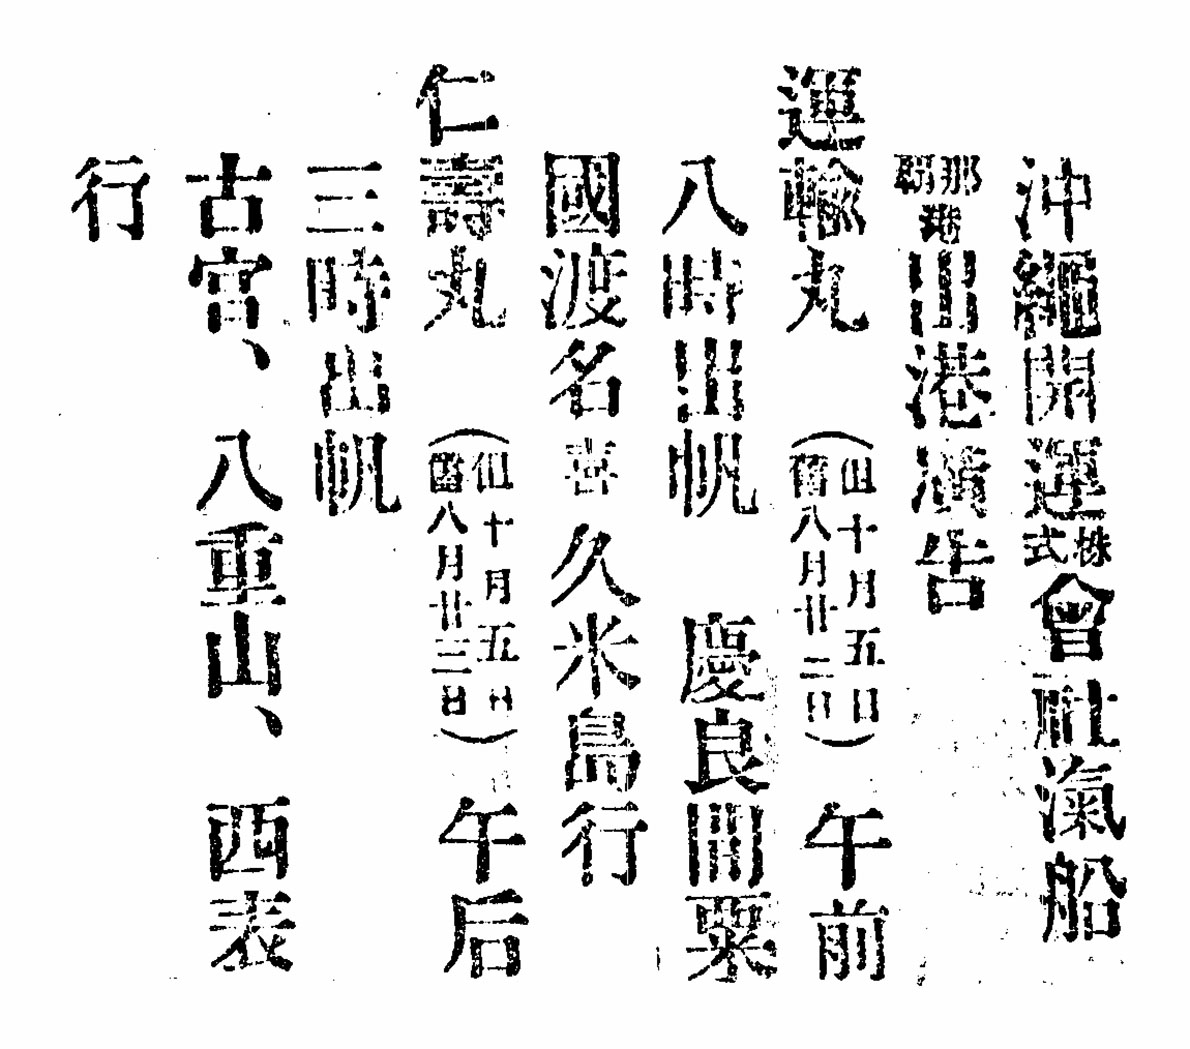 沖繩開運株式會社滊船
那覇港出港廣告
運輸丸(但十月五日舊八月廿二日)午前
八時出帆 慶良間粟
國渡名喜久米島行
仁壽丸(但十月五日舊八月廿三日)午后
三時出帆
古宮、八重山、西表
行